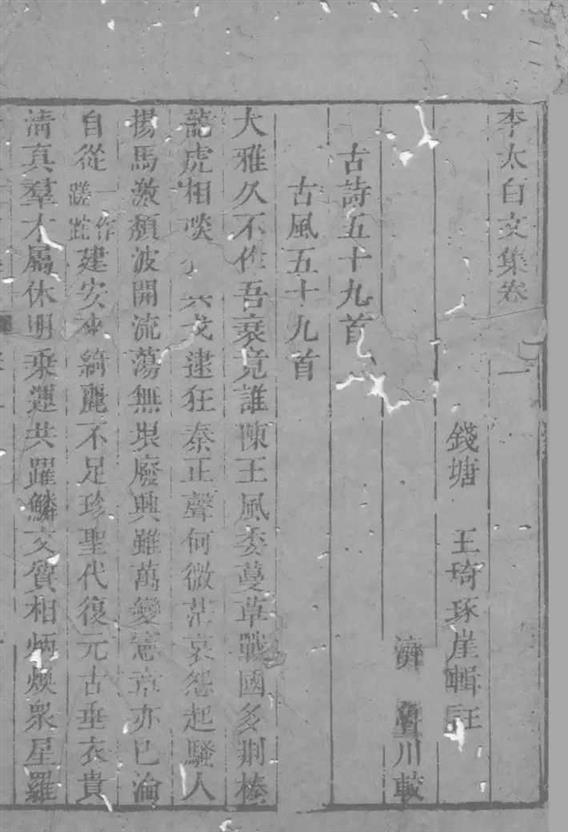 李太白文集卷一
錢塘 王琦琢崖輯註
濟 川較
古詩五十九首
古風五十九首
大雅久不作吾衰竟誰陳王風委蔓草戰國多荆榛
龍虎相啖兵戈逮狂秦正聲何微茫哀怨起騷人
揚馬激頽波開流蕩無垠廢興雖萬變憲章亦已淪
自從一作蹉跎建安來綺麗不足珍聖代復元古垂衣貴
清真羣才屬休明乘運共躍鱗文質相炳煥衆星羅